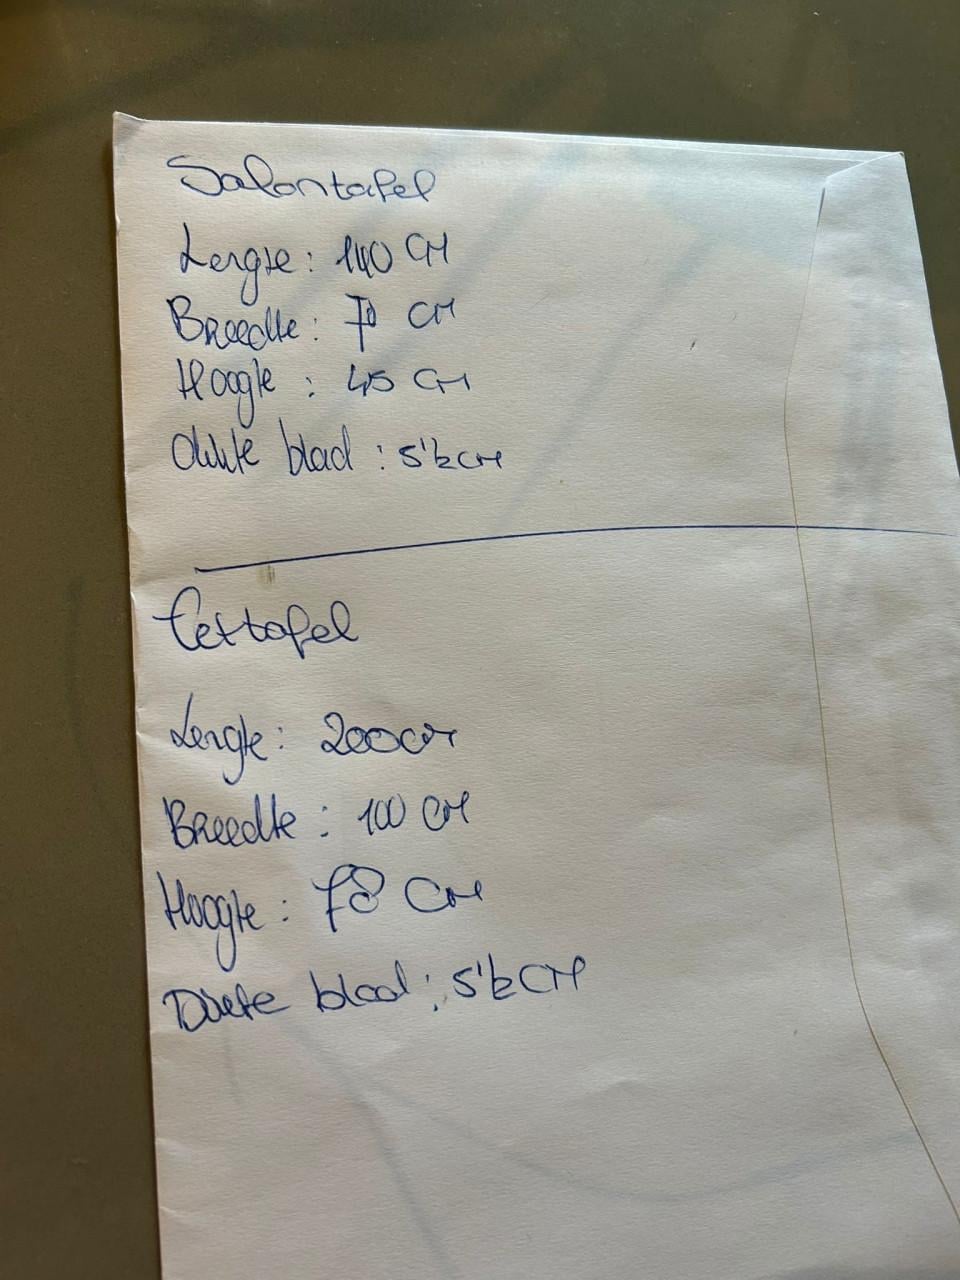 Salontafel
Lengte: 140 CM
Breedte: 70 CM
Hoogte: 45 CM
dikte blad: 5 1/2 CM
Eettafel
Lengte: 200 CM
Breedte: 100 CM
Hoogte: 78 CM
Dikte blad: 5 1/2 CM